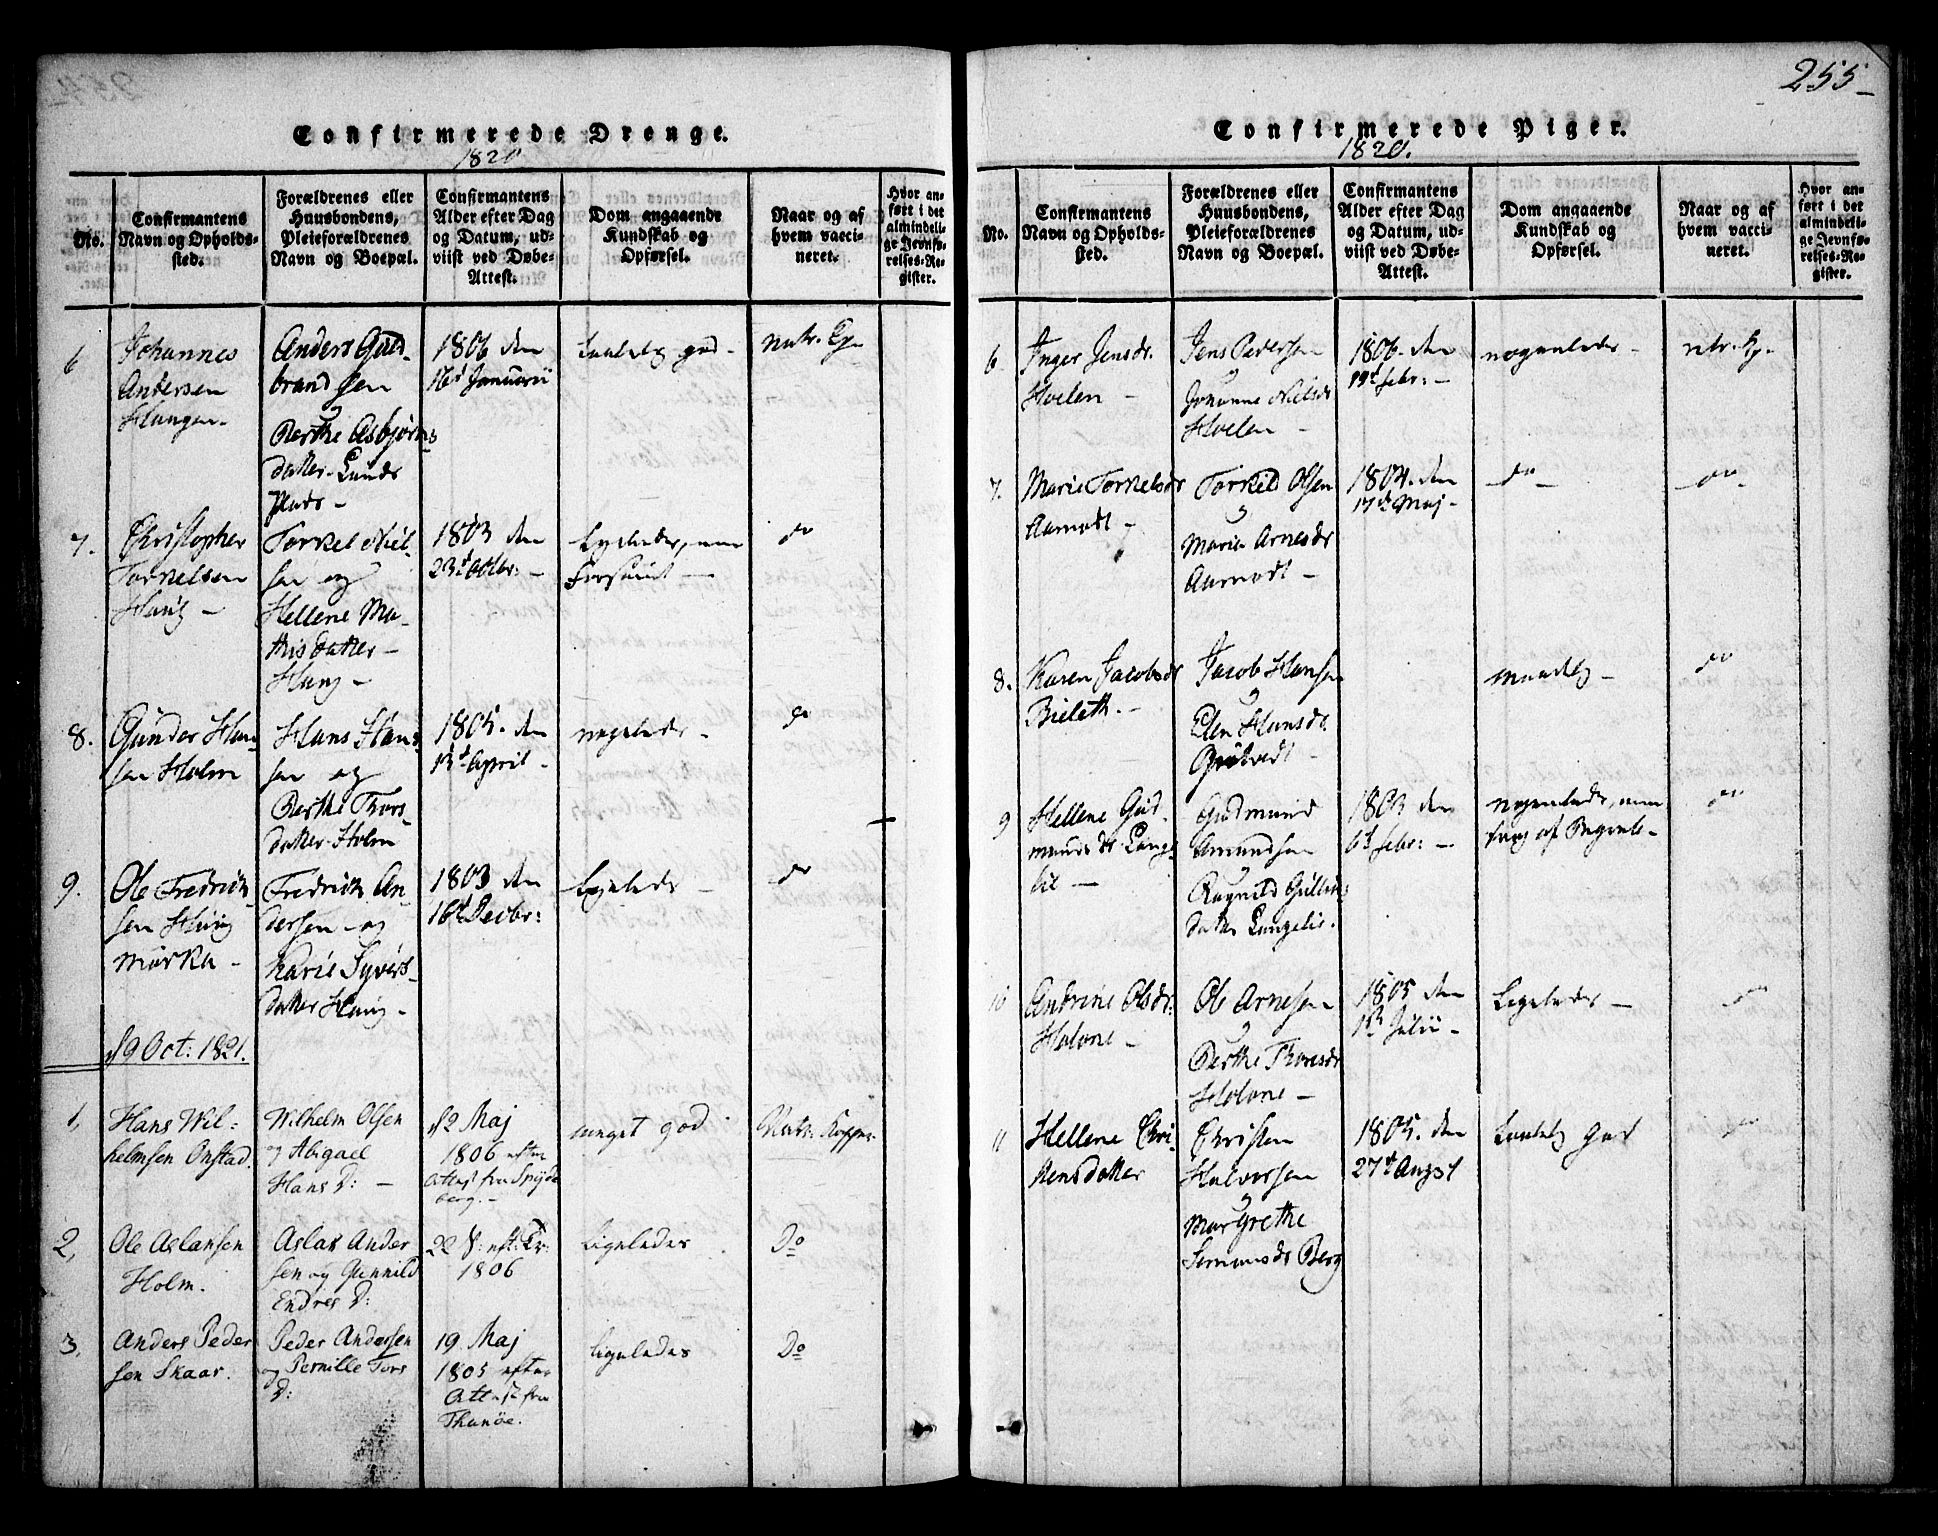 255
Confirmerede Drenge.
1820
No.
Confirmantens
Navn og Opholds-
sted.
Forældrenes eller
Huusbondens,
Pleieforældrenes
Navn og Boepæl.
Confirmantens
Alder efter Dag
og Datum, ud-
viist ved Døbe-
Attest.
Dom angaaende
Kundskab og
Opførsel.
Naar og af
hvem vacci-
neret.
Hvor an-
ført i det
almindeli-
ge Jevnfø-
relses-Re-
gister.
6
Johannes
Andersen
Haugen.
Anders Guld-
brandsen
Berthe Asbjørns
datter Lunds
Plads -
1806 den
16d Januarii
Taalelig god -
natr. Kp.
7.
Christopher
Torkelsen
Haug -
Torkel Niel-
sen og
Hellene Ma-
this datter -
Haug -
1803 den
23d Octbr: -
Ligeledes, men
forsømt -
do
8.
Gunder Han-
sen Holm
Hans Han-
sen og
Berthe Thors-
datter Holm
1805. den
13d April -
nogenledes -
do
9.
Ole Fredrik-
sen Haug
Marka -
Fredrik An-
dersen og
Karie Syvers-
datter Haug -
1803 den
16d Decbr:
Ligeledes -
do
d 9 Oct: 1821.
1,
Hans Wil=
helmsen Onstad.
Wilhelm Olsen
og Abigael
Hans D: -
d 2 Maj
1806 efter
Attest fra Spyde
berg. -
meget god
Natr. Kopper
2,
Ole Aslaksen
Holm.
Aslak Ander
sen og Gunnild
Endres D:
22 S: eft: Tr:
1806
Ligeledes
Do
3,
Anders Peder
sen Skaar.
Peder Andersen
og Pernille Tors
D:
19 Maj
1805 efter
Attest fra
Thunøe.
ligeledes
Do
Confirmerede Piger.
1820.
No.
Confirmantens
Navn og Opholds-
sted.
Forældrenes eller
Huusbondens,
Pleieforældrenes
Navn og Boepæl.
Confirmantens
Alder efter Dag
og Datum, ud-
viist ved Døbe-
Attest.
Dom angaaende
Kundskab og
Opførsel.
Naar og af
hvem vacci-
neret.
Hvor an-
ført i det
almindeli-
ge Jevnfø-
relses-Re-
gister.
6.
Inger Jensdr.
Hoelen -
Jens Pedersen
Johanne Nielsdr
Hoelen -
1806. den
19d febr: -
nogenledes -
ntr. Kp.
7.
Marie Torkelsdr
Aamodt -
Torkild Olsen
Marie Arnesdr
Aamodt -
1804. den
17de Maj -
do -
do -
8.
Karen Jacobsdr
Bieleth. -
Jacob Hansen
Elen Hansdr.
maadelig -
do
9
Hellene Gud-
mundsdr Lange
lie -
Gudmund
Amundsen
Ragnild Gulbrs
datter Langelie.
1803 den
6d febr: -
nogenledes, men
svag af Begreb -
do
10
Andrine Olsdr.
Holone -
Ole Arnesen
Berthe Thoresdr
Holone -
1805 den
1ste Julii -
Ligeledes -
do
11
Hellene Chri
stensdatter
Christen
Halvorsen
Margrethe
Simensdr Berg
1805. den
27de Augst
Taalelig god
do